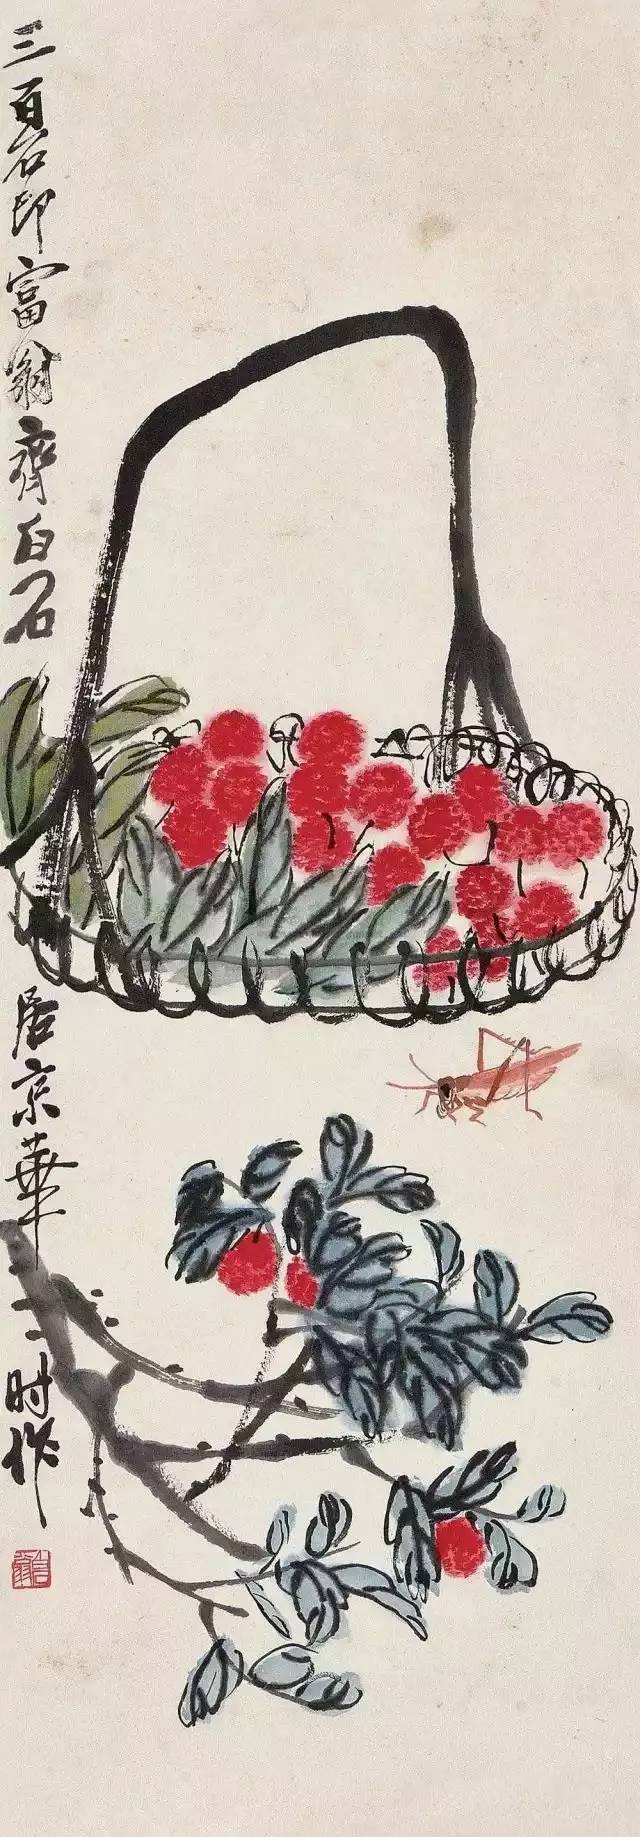 三百石印富翁齊白石居京華时作